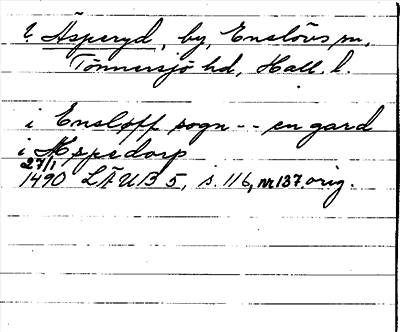 ? Äsperyd, by, Enslövs sn,
Tönnersjö hd, Hall. l.
i Ensløff sogn -- en gard
i Espedorp
27/1
1490 LÄUB 5, s. 116, nr 137. orig.